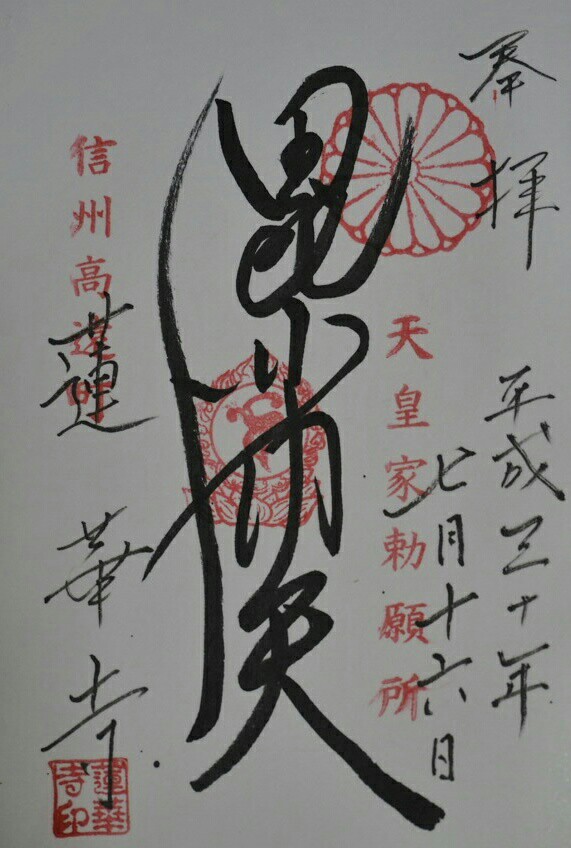 奉拝
平成三十年
七月十六日
天皇家勅願所
毘沙門天
信州高遠
蓮華寺
蓮華
寺印